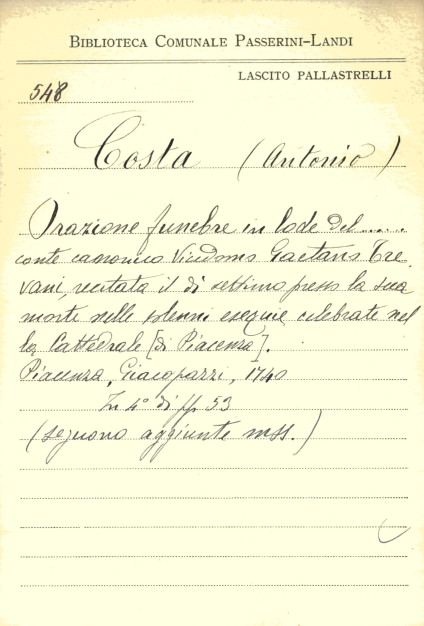 BIBLIOTECA COMUNALE PASSERINI-LANDI
LASCITO PALLASTRELLI
548
Costa (Antonio)
Orazione funebre in lode del ......
conte canonico Vicedomo Gaetano Tre-
vani, recitata il dì settimo presso la sua
morte nelle solenni esequie celebrate nel
la Cattedrale [di Piacenza].
Piacenza, Giacopazzi, 1740
In 4° di pp 53
(seguono aggiunte mss.)